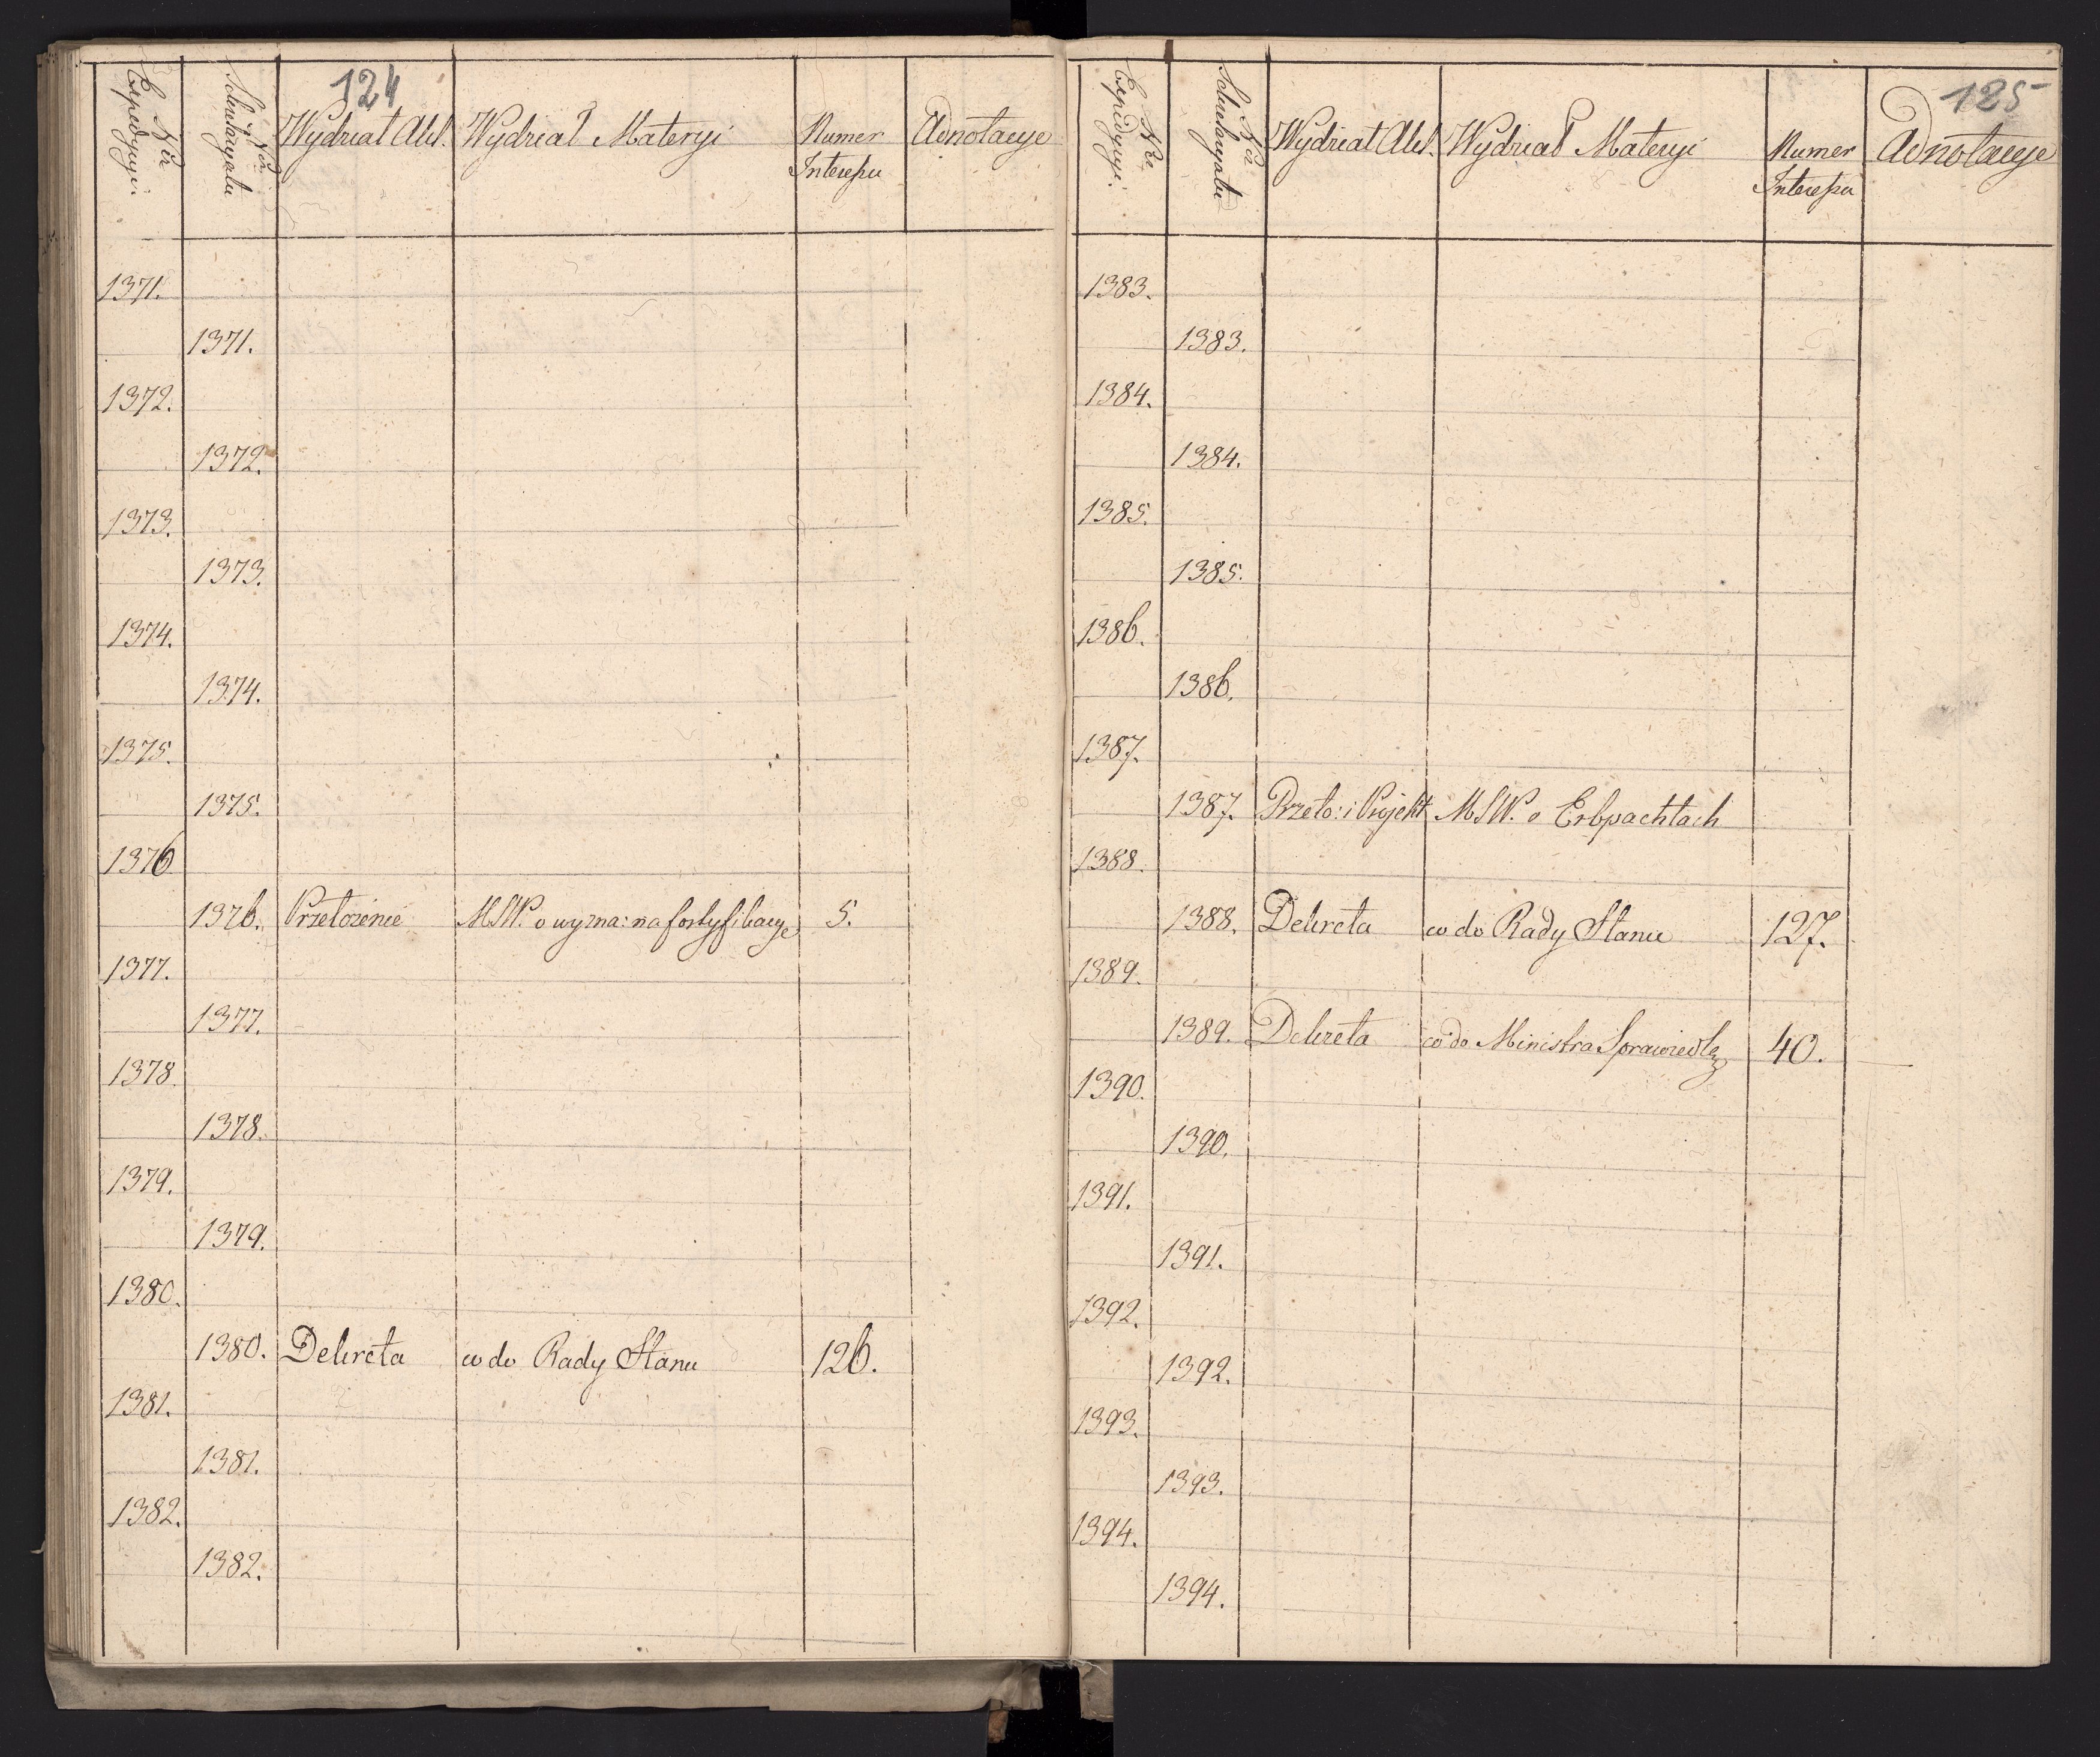 124
Nro Expedycyi.
Nro Sekretaryatu
Wydział Akt.
Wydział Materyi
Numer Interessu
Adnotacye
1371.
1371.
1372.
1372.
1373.
1373.
1374.
1374.
1375.
1375.
1376
1376. Przełożenie MSW. o wyzna: na fortyfikacye 5.
1377.
1377.
1378.
1378.
1379.
1379.
1380.
1380. Dekreta co do Rady Stanu 126.
1381.
1381.
1382.
1382.
125
Nro Expedycyi.
Nro Sekretaryatu
Wydział Akt.
Wydział Materyi
Numer Interessu
Adnotacye
1383.
1383.
1384.
1384.
1385.
1385.
1386.
1386.
1387.
1387. Przeło: i Projekt MSW. o Erbpachtach
1388.
1388. Dekreta co do Rady Stanu 127.
1389.
1389. Dekreta co do Ministra 40.
1390.
1390.
1391.
1391.
1392.
1392.
1393.
1393.
1394.
1394.